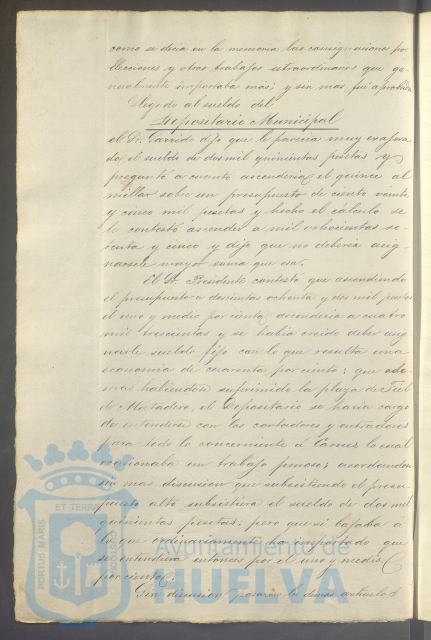 como se decia en la memoria las consignaciones por
elecciones y otros trabajos estraordinarios que ge-
neralmente importaba mas; y sin mas fué aprobada
Llegado al sueldo del
Depositario Municipal
el Sr. Garrido dijo que le parecia muy exajera-
do, el sueldo de dos mil quinientas pesetas y
preguntó a cuanto ascenderia el quince al
millar sobre un presupuesto de ciento veinte
y cinco mil pesetas y hecho el cálculo se
le contestó ascender a mil ochocientas se-
tenta y cinco y dijo que no deberia asig-
narsele mayor suma que esa.
El Sr. Presidente contestó que ascendiendo
el presupuesto a doscientas ochenta y dos mil pesetas
el uno y medio por ciento, ascenderia a cuatro
mil trescientas y se habia creido deber asig-
narle sueldo fijo con lo que resulta una
economia de cuarenta por ciento; que ade-
mas habiendose suprimido la plaza de Fiel
de Matadero, el Depositario se haria cargo
de entenderse con los cortadores y entradores
para todo lo concerniente á Carnes lo cual
ocasionaba un trabajo penoso; acordandose
sin mas discusion que subsistiendo el presu-
puesto alto subsistiera el sueldo de dos mil
quinientas pesetas; pero que si bajaba a
lo que ordinariamente ha importado que
se entendiera entonces por el uno y medio
por ciento.
Sin discusion pasaron los demas articulos
PORTUS MARIS
ET TERRAE
Ayuntamiento de
HUELVA